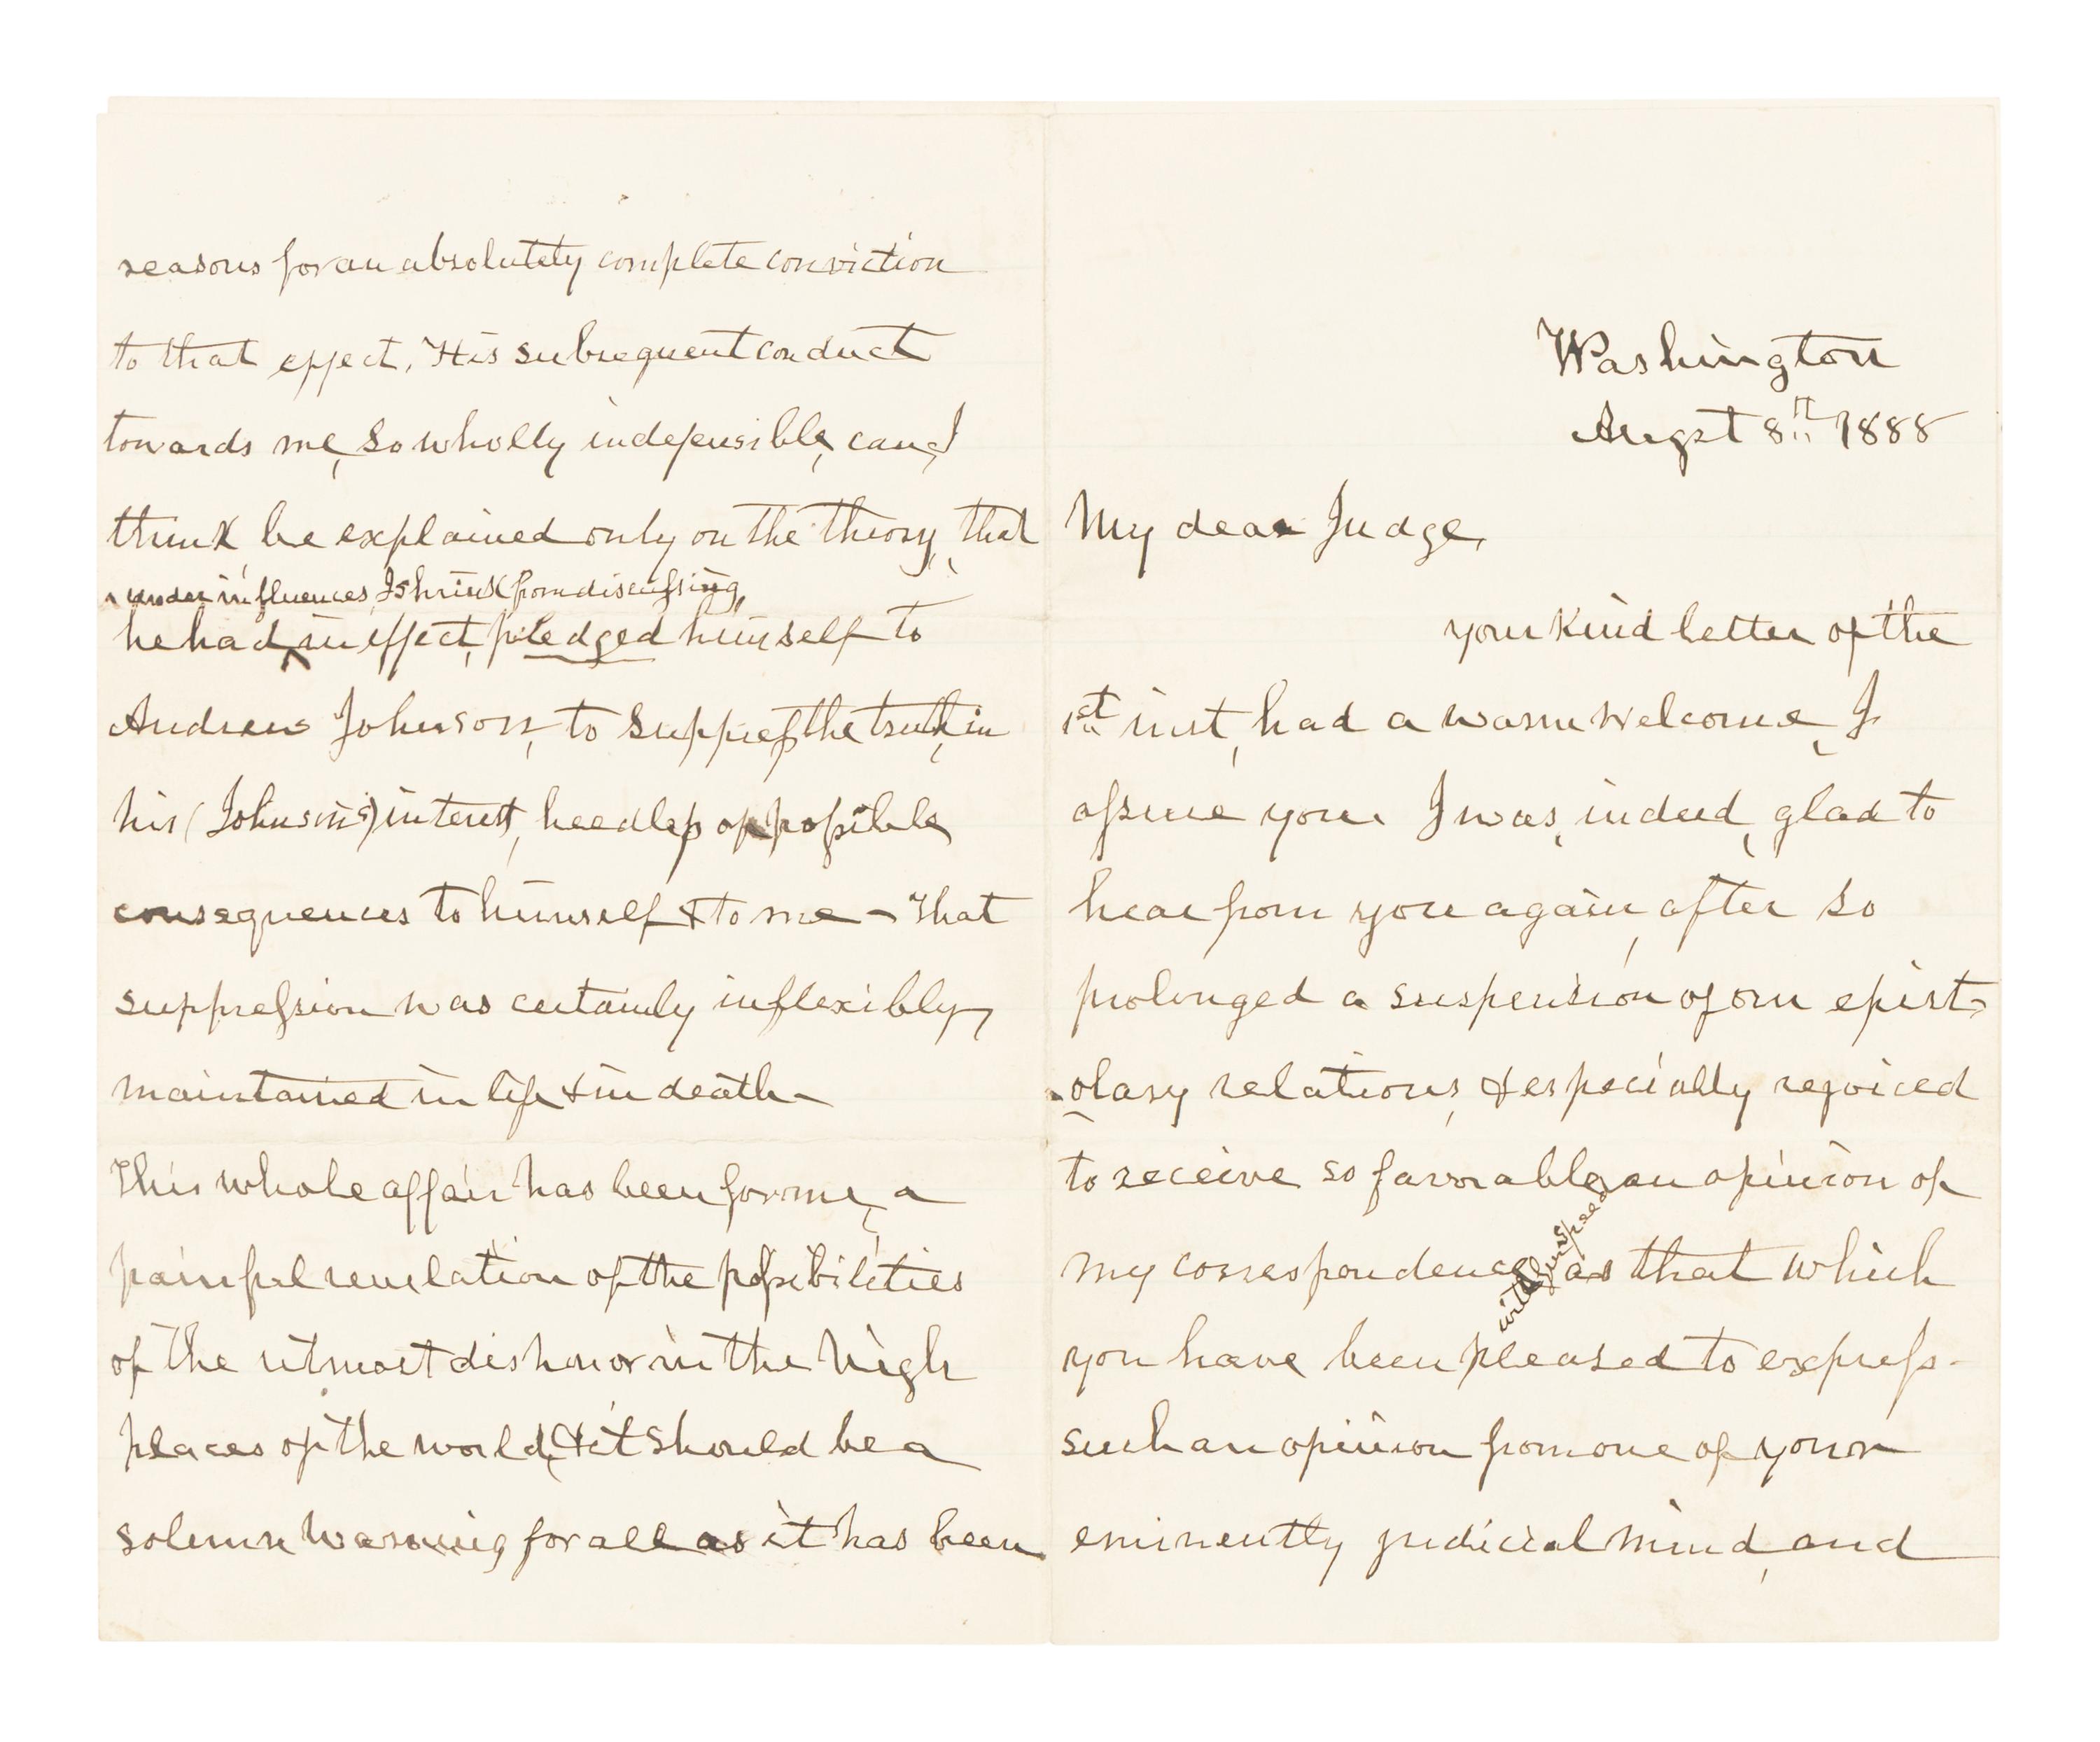 reasons for an absolutely complete conviction
to that effect. His subsequent conduct
towards me, so wholly indefensible, can, I
think be explained only on the theory, that
under influences, I shrink from discussing,
he had ^ in effect, pledged himself to
Andrew Johnson, to suppress the truth, in
his (Johnson's) interest, heedless of possible
consequences to himself & to me – That
suppression was certainly inflexibly,
maintained in life & in death –
This whole affair has been for me, a
painful revelation of the possibilities
of the utmost dishonor in the high
places of the world, & it should be a
solemn warning for all as it has been
Washington
Augst 8th 1888
My dear Judge,
your kind letter of the
1st inst, had a warm welcome, I
assure you I was, indeed, glad to
hear from you again, after so
prolonged a suspension of our epist-
-olary relations, & especially rejoiced
to receive so favorable an opinion of
my correspondence with Speed as that which
you have been pleased to express.
such an opinion from one of your
eminently judicial mind, and